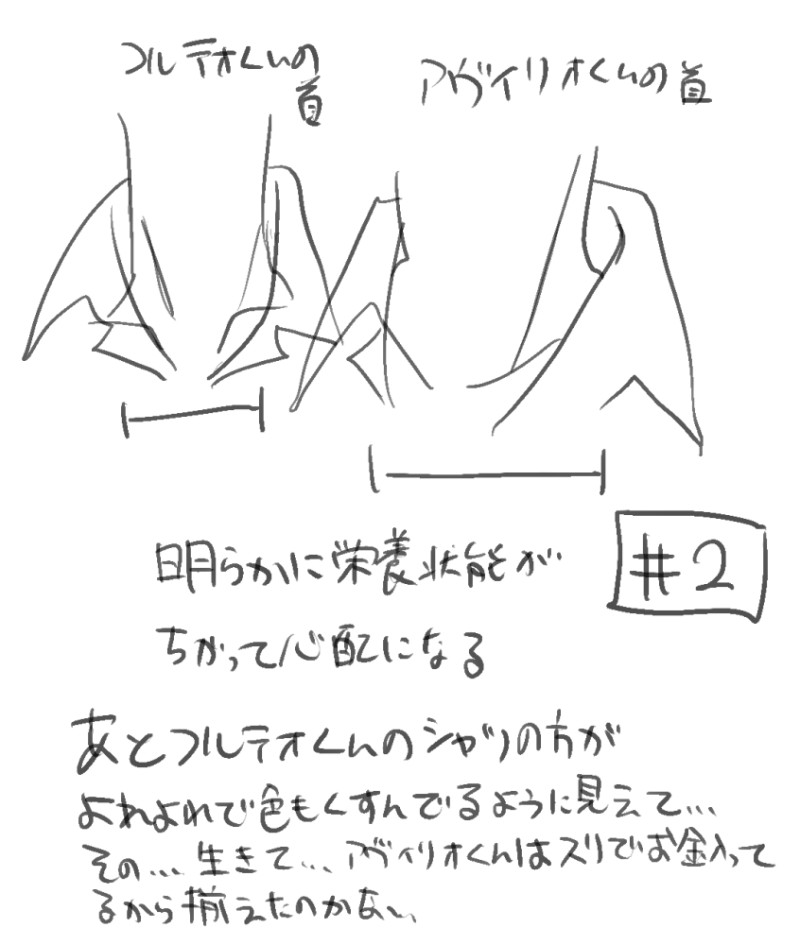 フルテオくんの
首
アヴィリオくんの首
明らかに栄養状態が
ちがって心配になる
#2
あとフルテオくんのシャツの方が
よれよれで色もくすんでるように見えて...
その...生きて...アヴィリオくんはスリでお金入って
るから揃えたのかな、、